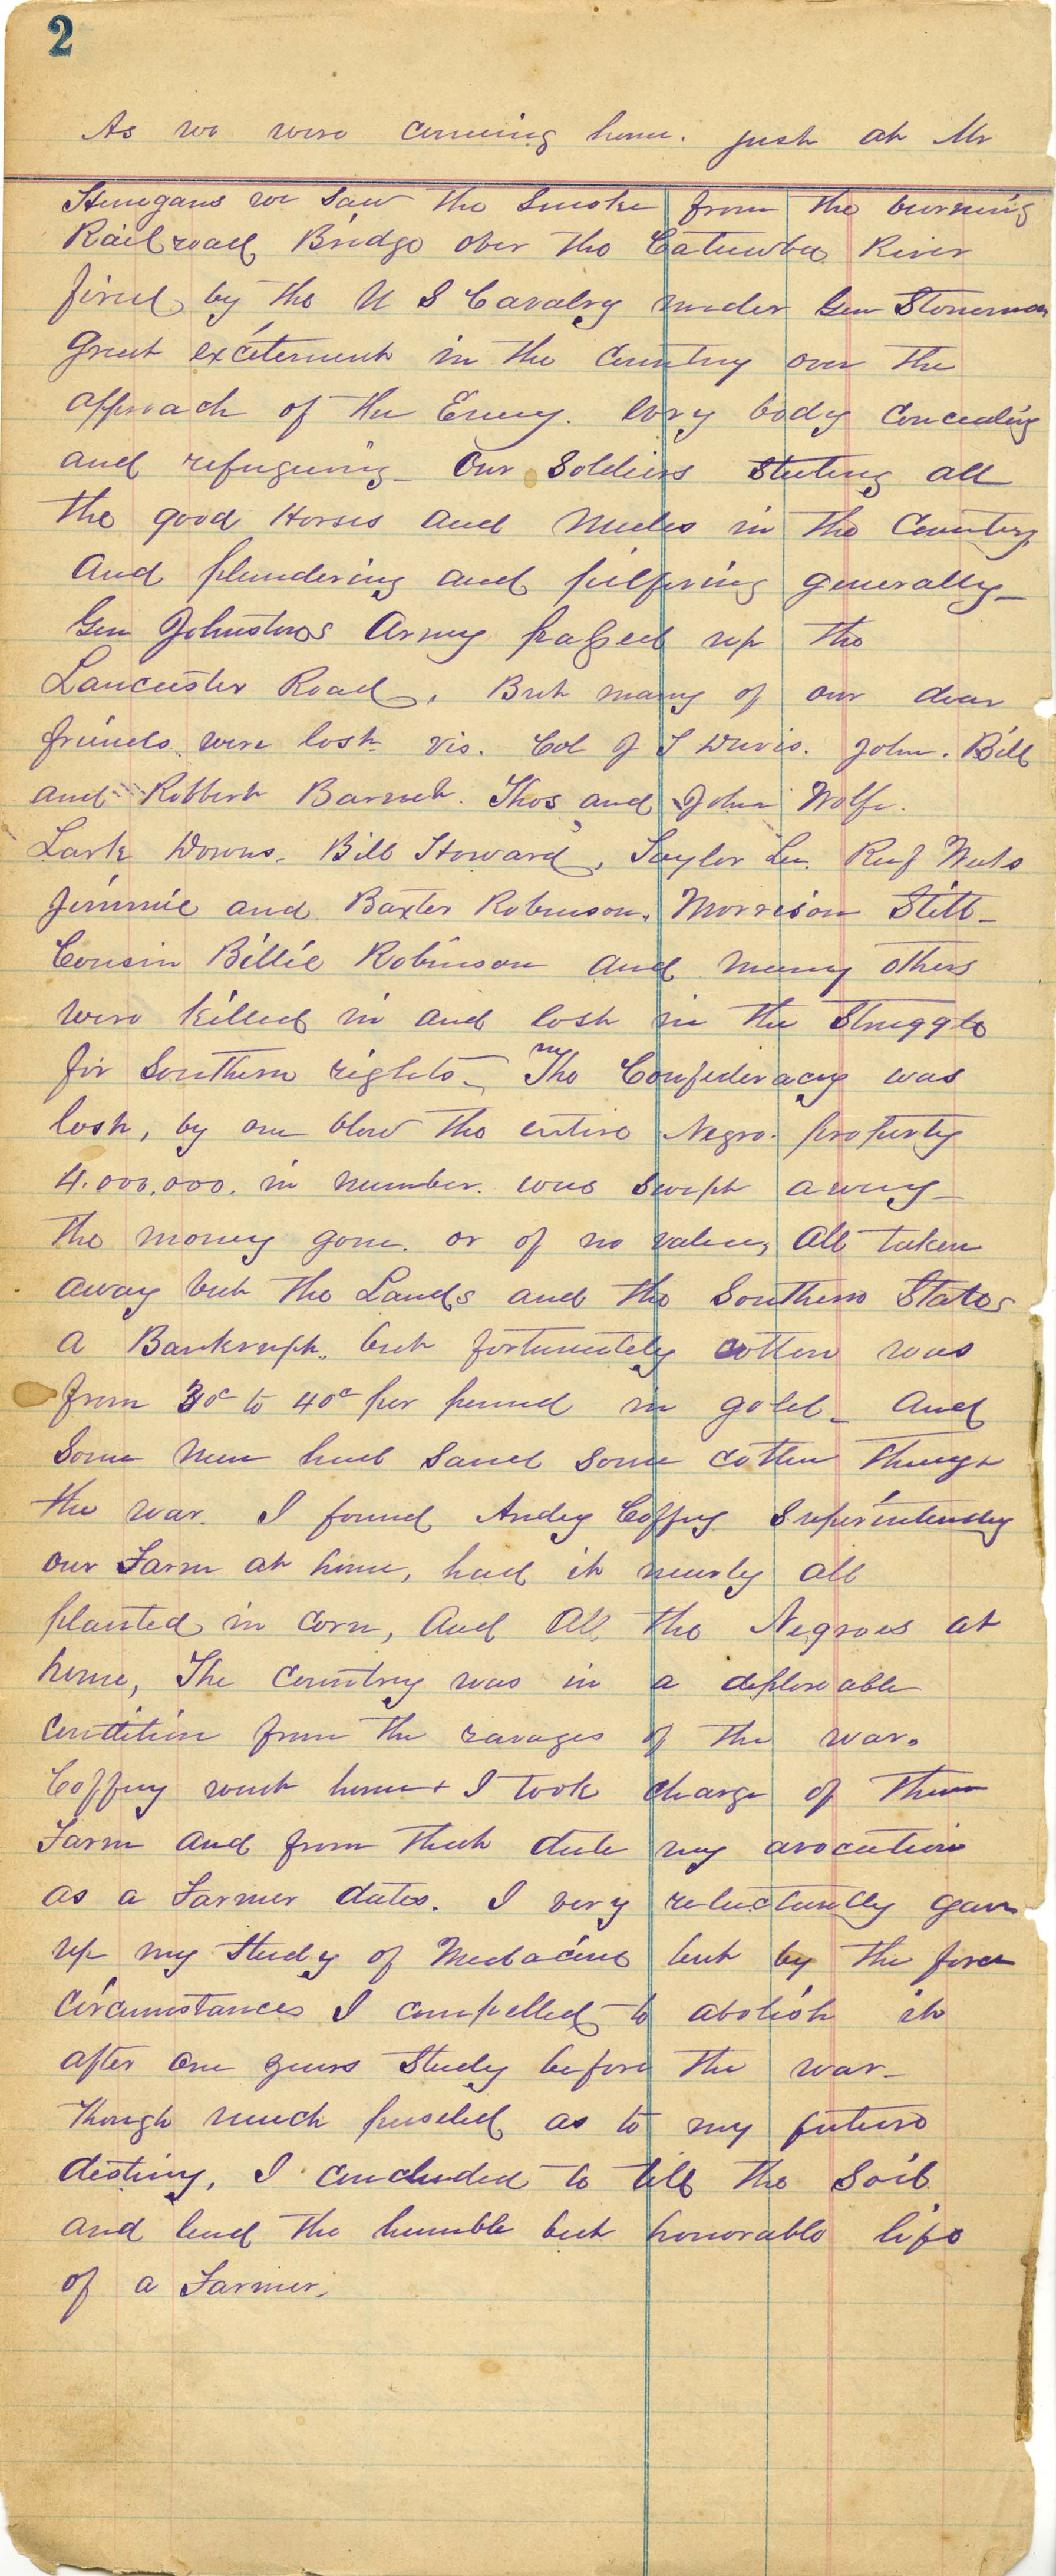 2
As we were comeing home. just at Mr
Henegans we saw the Smoke from the burning
Railroad Bridge over the Catawba River
fired by the U S Cavalry under Gen Stoneman
great excitement in the Country over the
approach of the Enemy. Evry body Concealing
and refugeeing_ Our Soldiers Steeling all
the good Horses and Mules in the Country
And plundering and pilfering generally_
Gen Johnstons Army passed up the
Lancaster Road. But many of our dear
friends were lost vis. Col J T Davis. John. Bill
and Robbert Barnet. Thos and John Wolfe.
Lark Downs. Bill Howard, Taylor Lee. Ruf
Jimmie and Baxter Robinson. Morrison Stitt_
Cousin Billie Robinson and many others
were killed in and lost in the Struggle
for Southern rights_ The Confederacy was
lost, by one blow the entire Negro property
4.000,000. in number. was swept away_
The money gone. or of no value, All taken
away but the Lands and the Southern States
a Bankrupt, but fortunately cotton was
from 30c to 40c per pound in gold_ And
Some men had saved some cotton through
the war. I found Andy Coffey Superintending
our Farm at home, had it nearly all
planted in Corn, And All the Negroes at
home, The Country was in a deplorable
Condition from the ravages of the war.
Coffey went home + I took charge of the
Farm and from that date my avocation
as a Farmer dates. I very reluctantly gave
up my Study of Medacine but by the force
Circumstances I compelled to abolish it
after One years Study before the war_
Though much pusseled as to my future
destiny, I concluded to till the Soil
and lead the humble but honorable life
of a Farmer.